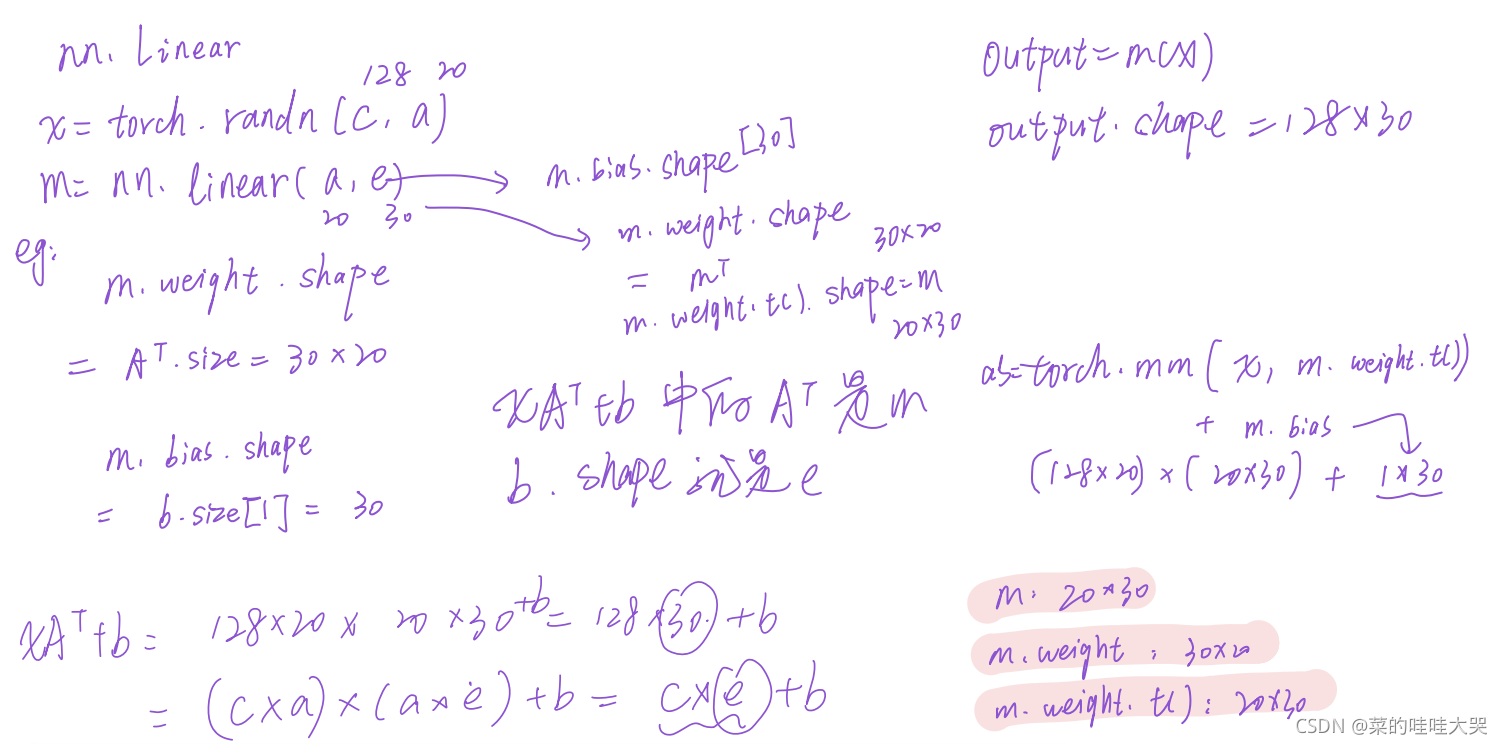 nn. Linear
128 20
x = torch. randn (c, a)
m = nn. linear( a, e)
20 30
eg:
m. weight. shape
= Aᵀ.size = 30 × 20
m. bias. shape
= b.size[1] = 30
m. bias. shape [30]
m. weight. shape 30×20
= mᵀ
m. weight. t(). shape = m
20×30
xAᵀ+b 中的 Aᵀ是 m
b. shape 就是 e
output = m(x)
output. shape = 128×30
torch. mm( x, m. weight. t())
+ m. bias
(128×20) × (20×30) + 1×30
xAᵀ+b = 128×20 × 20×30 +b = 128×30 + b
= (c×a) × (a×e) + b = c×e + b
m: 20×30
m. weight : 30×20
m. weight. t() : 20×30
CSDN @菜的哇哇大哭